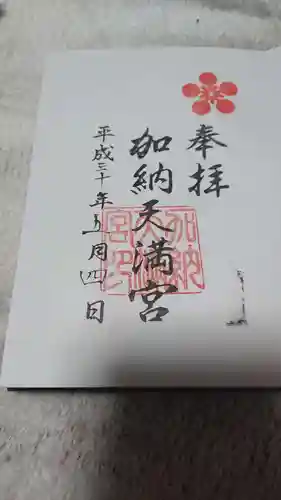 奉拝
加納天満宮
平成三十年五月四日
加納天満宮印